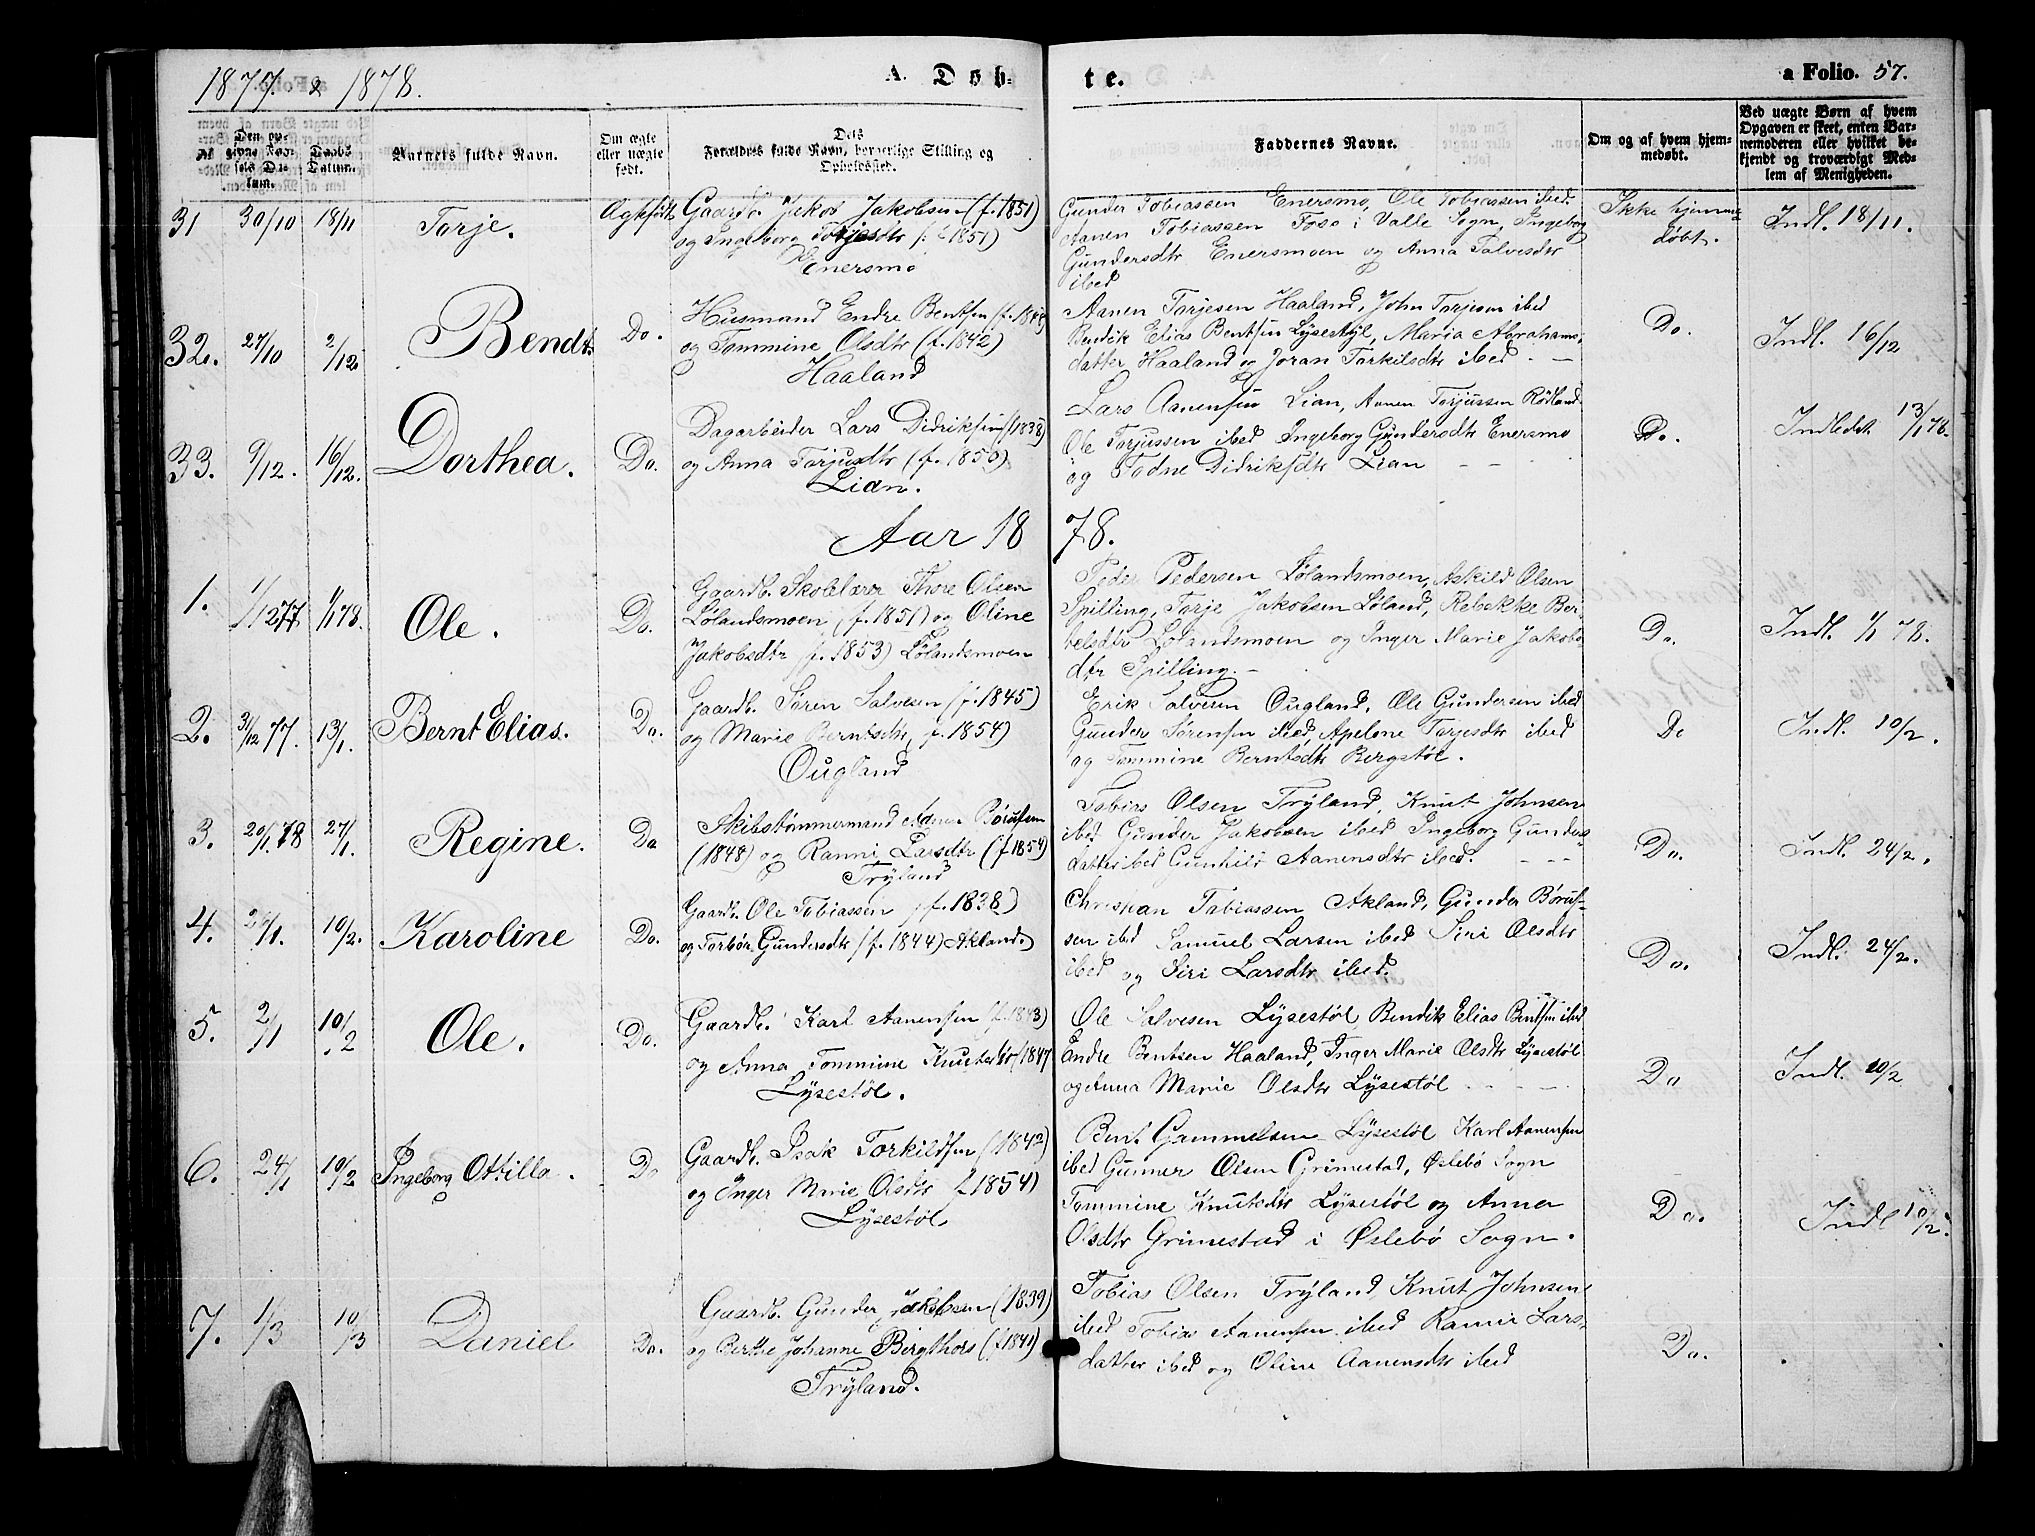 1877 & 1878.
A. Døb-
te.
a Folio. 57.
Den op-
givne Fød-
sels Da-
tum.
Daabs
Datum.
Barnets fulde Navn.
Om ægte
eller uægte
født.
Dets
Forældres fulde Navn, borgerlige Stilling og
Opholdssted.
Faddernes Navne.
Om og af hvem hjem-
medøbt.
Ved uægte Børn af hvem
Opgaven er skeet, enten Bar-
nemoderen eller hvilket be-
kjendt og troværdigt Med-
lem af Menigheden.
31 30/10 18/11 Torje. Ægtefødt
Gaardb. Jakob Jakobsen (f. 1851)
og Ingeborg Torjesdtr f. 1851)
Enersmo
Gunder Tobiassen Enersmo, Ole Tobiassen ibed.
Aanen Tobiassen Foss i Valle Sogn, Ingeborg
Gundersdtr Enersmoen og Anna Salvesdtr
ibed
Ikke hjemme
døbt.
Indl. 18/11.
32. 27/10 2/12. Bendt. Do.
Husmand Endre Bentsen f. 1848)
og Tommine Olsdtr (f. 1842)
Haaland
Aanen Torjesen Haaland, John Torjesen ibed
Bendik Elias Bentsen Lysestøl, Maria Abrahams-
datter Haaland og Joran Torkilsdtr ibed. —
Do.
Indl. 16/12
33. 9/12. 16/12. Dorthea. Do.
Dagarbeider Lars Didriksen (f 1838)
og Anna Torjusdtr (f. 1850)
Lian.
Lars Aanensen Lian, Aanen Torjussen Rødland
Ole Torjussen ibed Ingeborg Gundersdtr Enersmo
og Todne Didriksdtr Lian — —
Do.
Indledet 13/1 78.
Aar 1878.
1. 1/12 77 1/1 78. Ole. Do.
Gaardb. Skolelærer Thore Olsen
Lølandsmoen (f. 1851) og Oline
Jakobsdtr (f. 1853) Lølandsmoen
Peder Pedersen Lølandsmoen, Askild Olsen
Spilling, Torje Jakobsen Løland, Rebekke Ber-
telsdtr Lølandsmoen og Inger Marie Jakobs-
dtr Spilling. —
Do.
Indl. 1/1 78.
2. 31/12 77. 13/1. Bernt Elias. Do.
Gaardb. Søren Salvesen (f. 1845)
og Marie Berntsdtr, f. 1854)
Ougland
Erik Salvesen Ougland, Ole Gundersen ibed
Gunder Sørensen ibed, Apelone Torjesdtr ibed
og Tommine Berntsdtr Bergstøl.
Do
Indl. 10/2.
3. 20/1. 78 27/1. Regine. Do
Skibstømmermand Aanen Børufsen
(1848) og Ranni Larsdtr (f 1854)
Trÿland
Tobias Olsen Trÿland, Knut Johnsen
ibed Gunder Jakobsen ibed Ingeborg Gunders-
datter ibed Gunhild Aanensdtr ibed. — — —
Do.
Indl. 24/2.
4. 26/1. 10/2. Karoline Do.
Gaardb. Ole Tobiassen f. 1838)
og Torbør Gundersdtr (f. 1844) Akland.
Christian Tobiassen Akland, Gunder Børuf-
sen ibd Samuel Larsen ibed Siri Olsdtr
ibed og Siri Larsdtr ibed.
Do.
Indl. 24/2.
5. 2/1 10/2 Ole. Do.
Gaardb. Karl Aanensen (f. 1843)
og Anna Tommine Knutsdtr 1847
Lÿsestøl.
Ole Salvesen Lÿsestøl Bendik Elias Bentsen ibed
Endre Bentsen Haaland, Inger Marie Olsdtr Lÿsestøl
og Anna Marie Olsdtr Lÿsestøl — — —
Do
Indl. 10/2
6. 24/1 10/2 Ingeborg Ottilla. Do
Gaardb. Isak Torkildsen (1842)
og Inger Marie Olsdtr f. 1854)
Lÿsestøl
Bent Gammelsen Lÿsestøl Karl Aanensen
ibed Gunner Olsen Grimestad, Øslebø Sogn
Tommine Knutsdtr Lÿsestøl og Anna
Olsdtr Grimestad i Øslebø Sogn.
Do.
Indl 10/2.
7. 1/3 10/3 Daniel Do.
Gaardb. Gunder Jakobsen (1839)
og Berthe Johanne Bergthors (f 1841)
Trÿland.
Tobias Olsen Trÿland Knut Johnsen
ibed Tobias Aanensen ibed Ranni Lars-
datter ibed og Oline Aanensdtr ibed
Do.